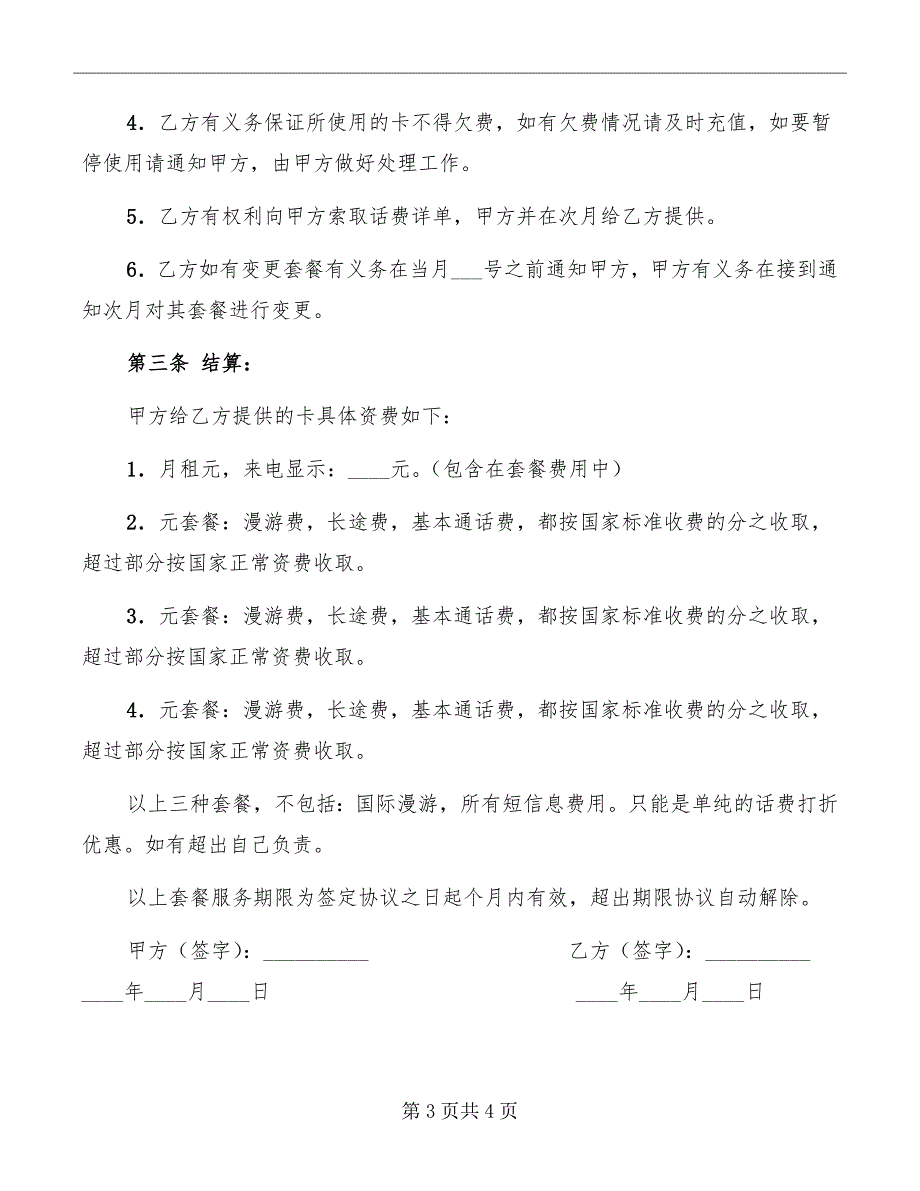 4. 乙方有义务保证所使用的卡不得欠费，如有欠费情况请及时充值，如要暂
停使用请通知甲方，由甲方做好处理工作。
5. 乙方有权利向甲方索取话费详单，甲方并在次月给乙方提供。
6. 乙方如有变更套餐有义务在当月___号之前通知甲方，甲方有义务在接到通
知次月对其套餐进行变更。
第三条 结算：
甲方给乙方提供的卡具体资费如下：
1. 月租元，来电显示：____元。（包含在套餐费用中）
2. 元套餐：漫游费，长途费，基本通话费，都按国家标准收费的分之收取，
超过部分按国家正常资费收取。
3. 元套餐：漫游费，长途费，基本通话费，都按国家标准收费的分之收取，
超过部分按国家正常资费收取。
4. 元套餐：漫游费，长途费，基本通话费，都按国家标准收费的分之收取，
超过部分按国家正常资费收取。
以上三种套餐，不包括：国际漫游，所有短信息费用。只能是单纯的话费打折
优惠。如有超出自己负责。
以上套餐服务期限为签定协议之日起个月内有效，超出期限协议自动解除。
甲方（签字）：__________ 乙方（签字）：__________
____年____月____日 ____年____月____日
第 3 页共 4 页